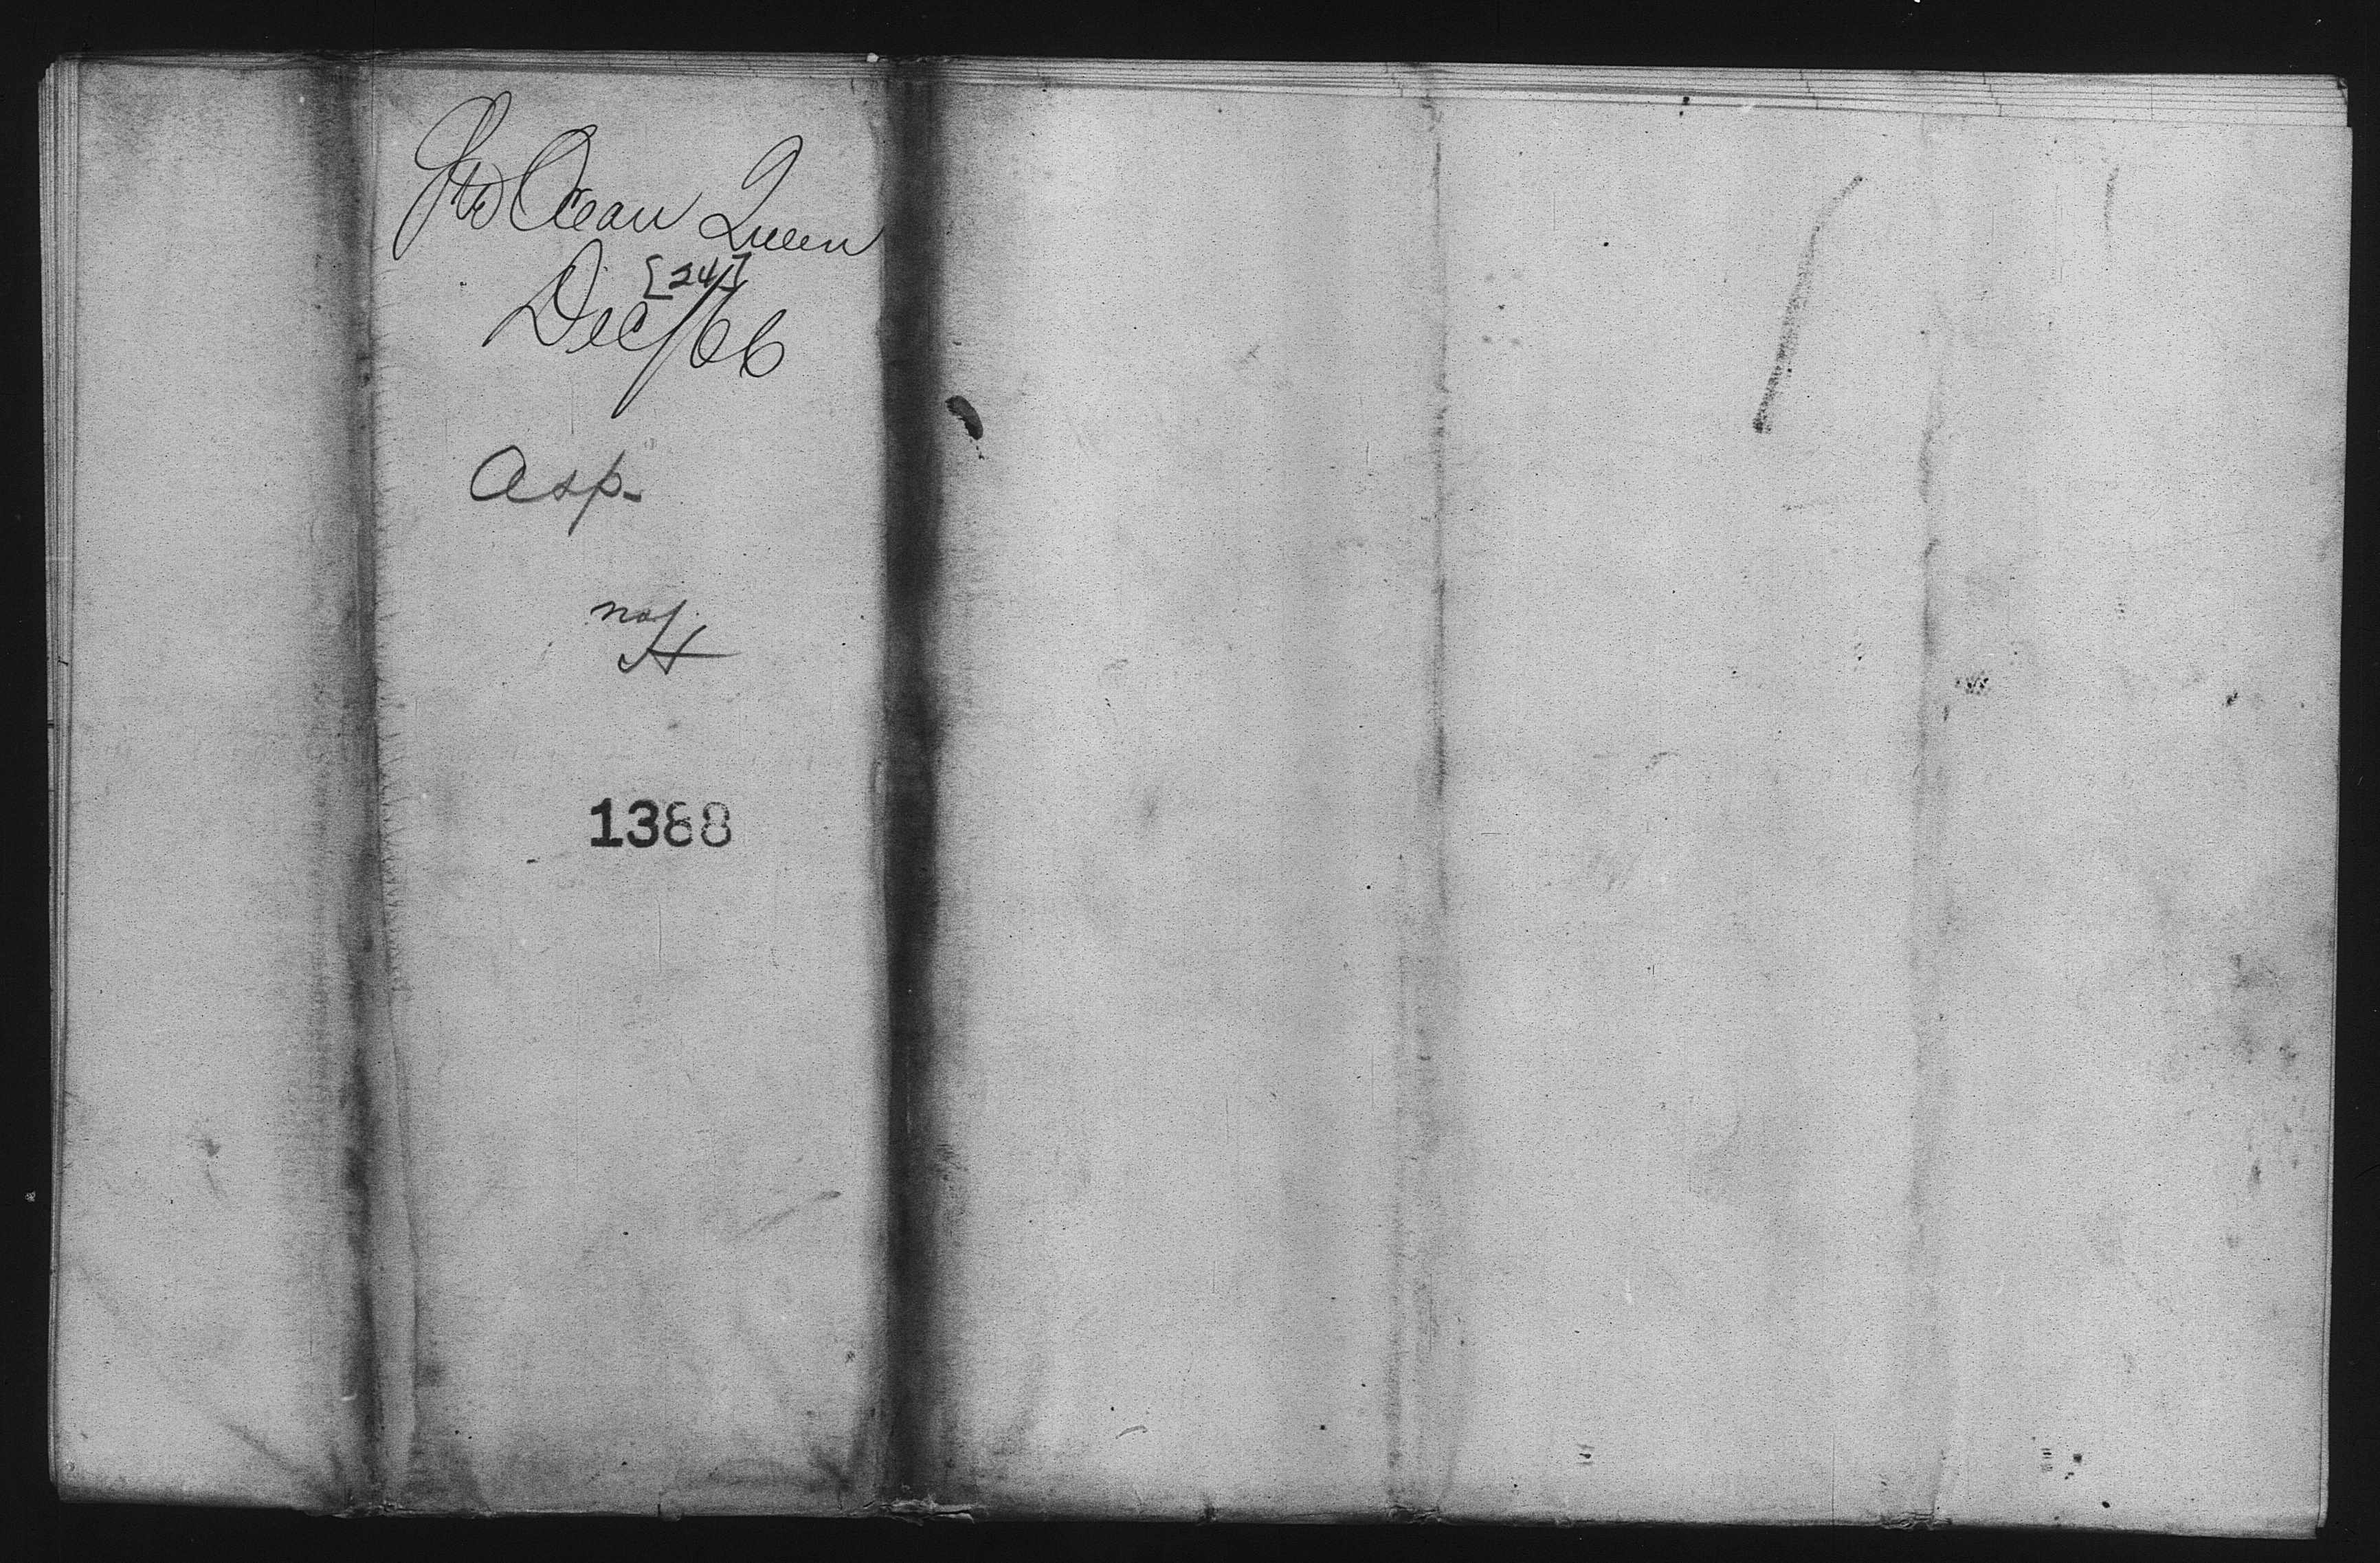 Str Ocean Queen
[24]
Dec/66
Asp-
1388